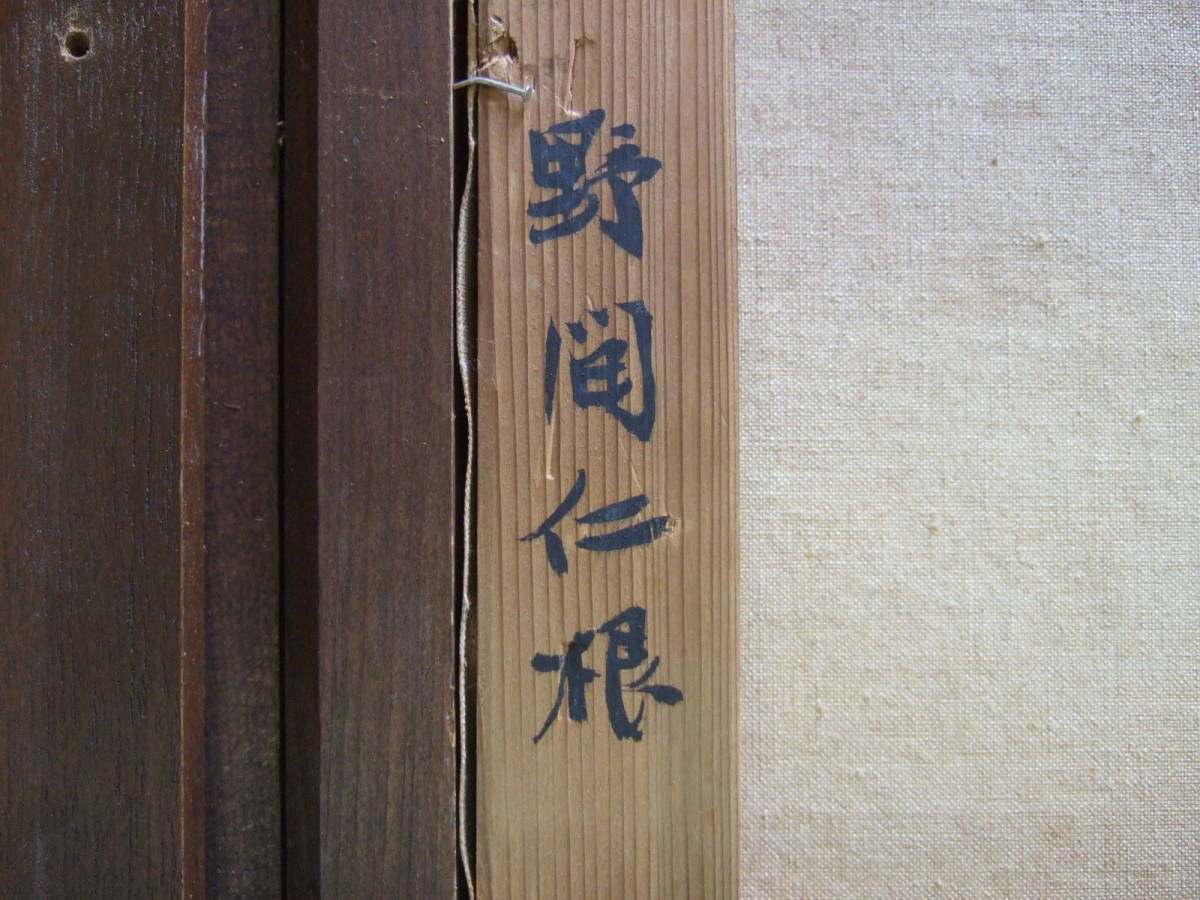 野間仁根